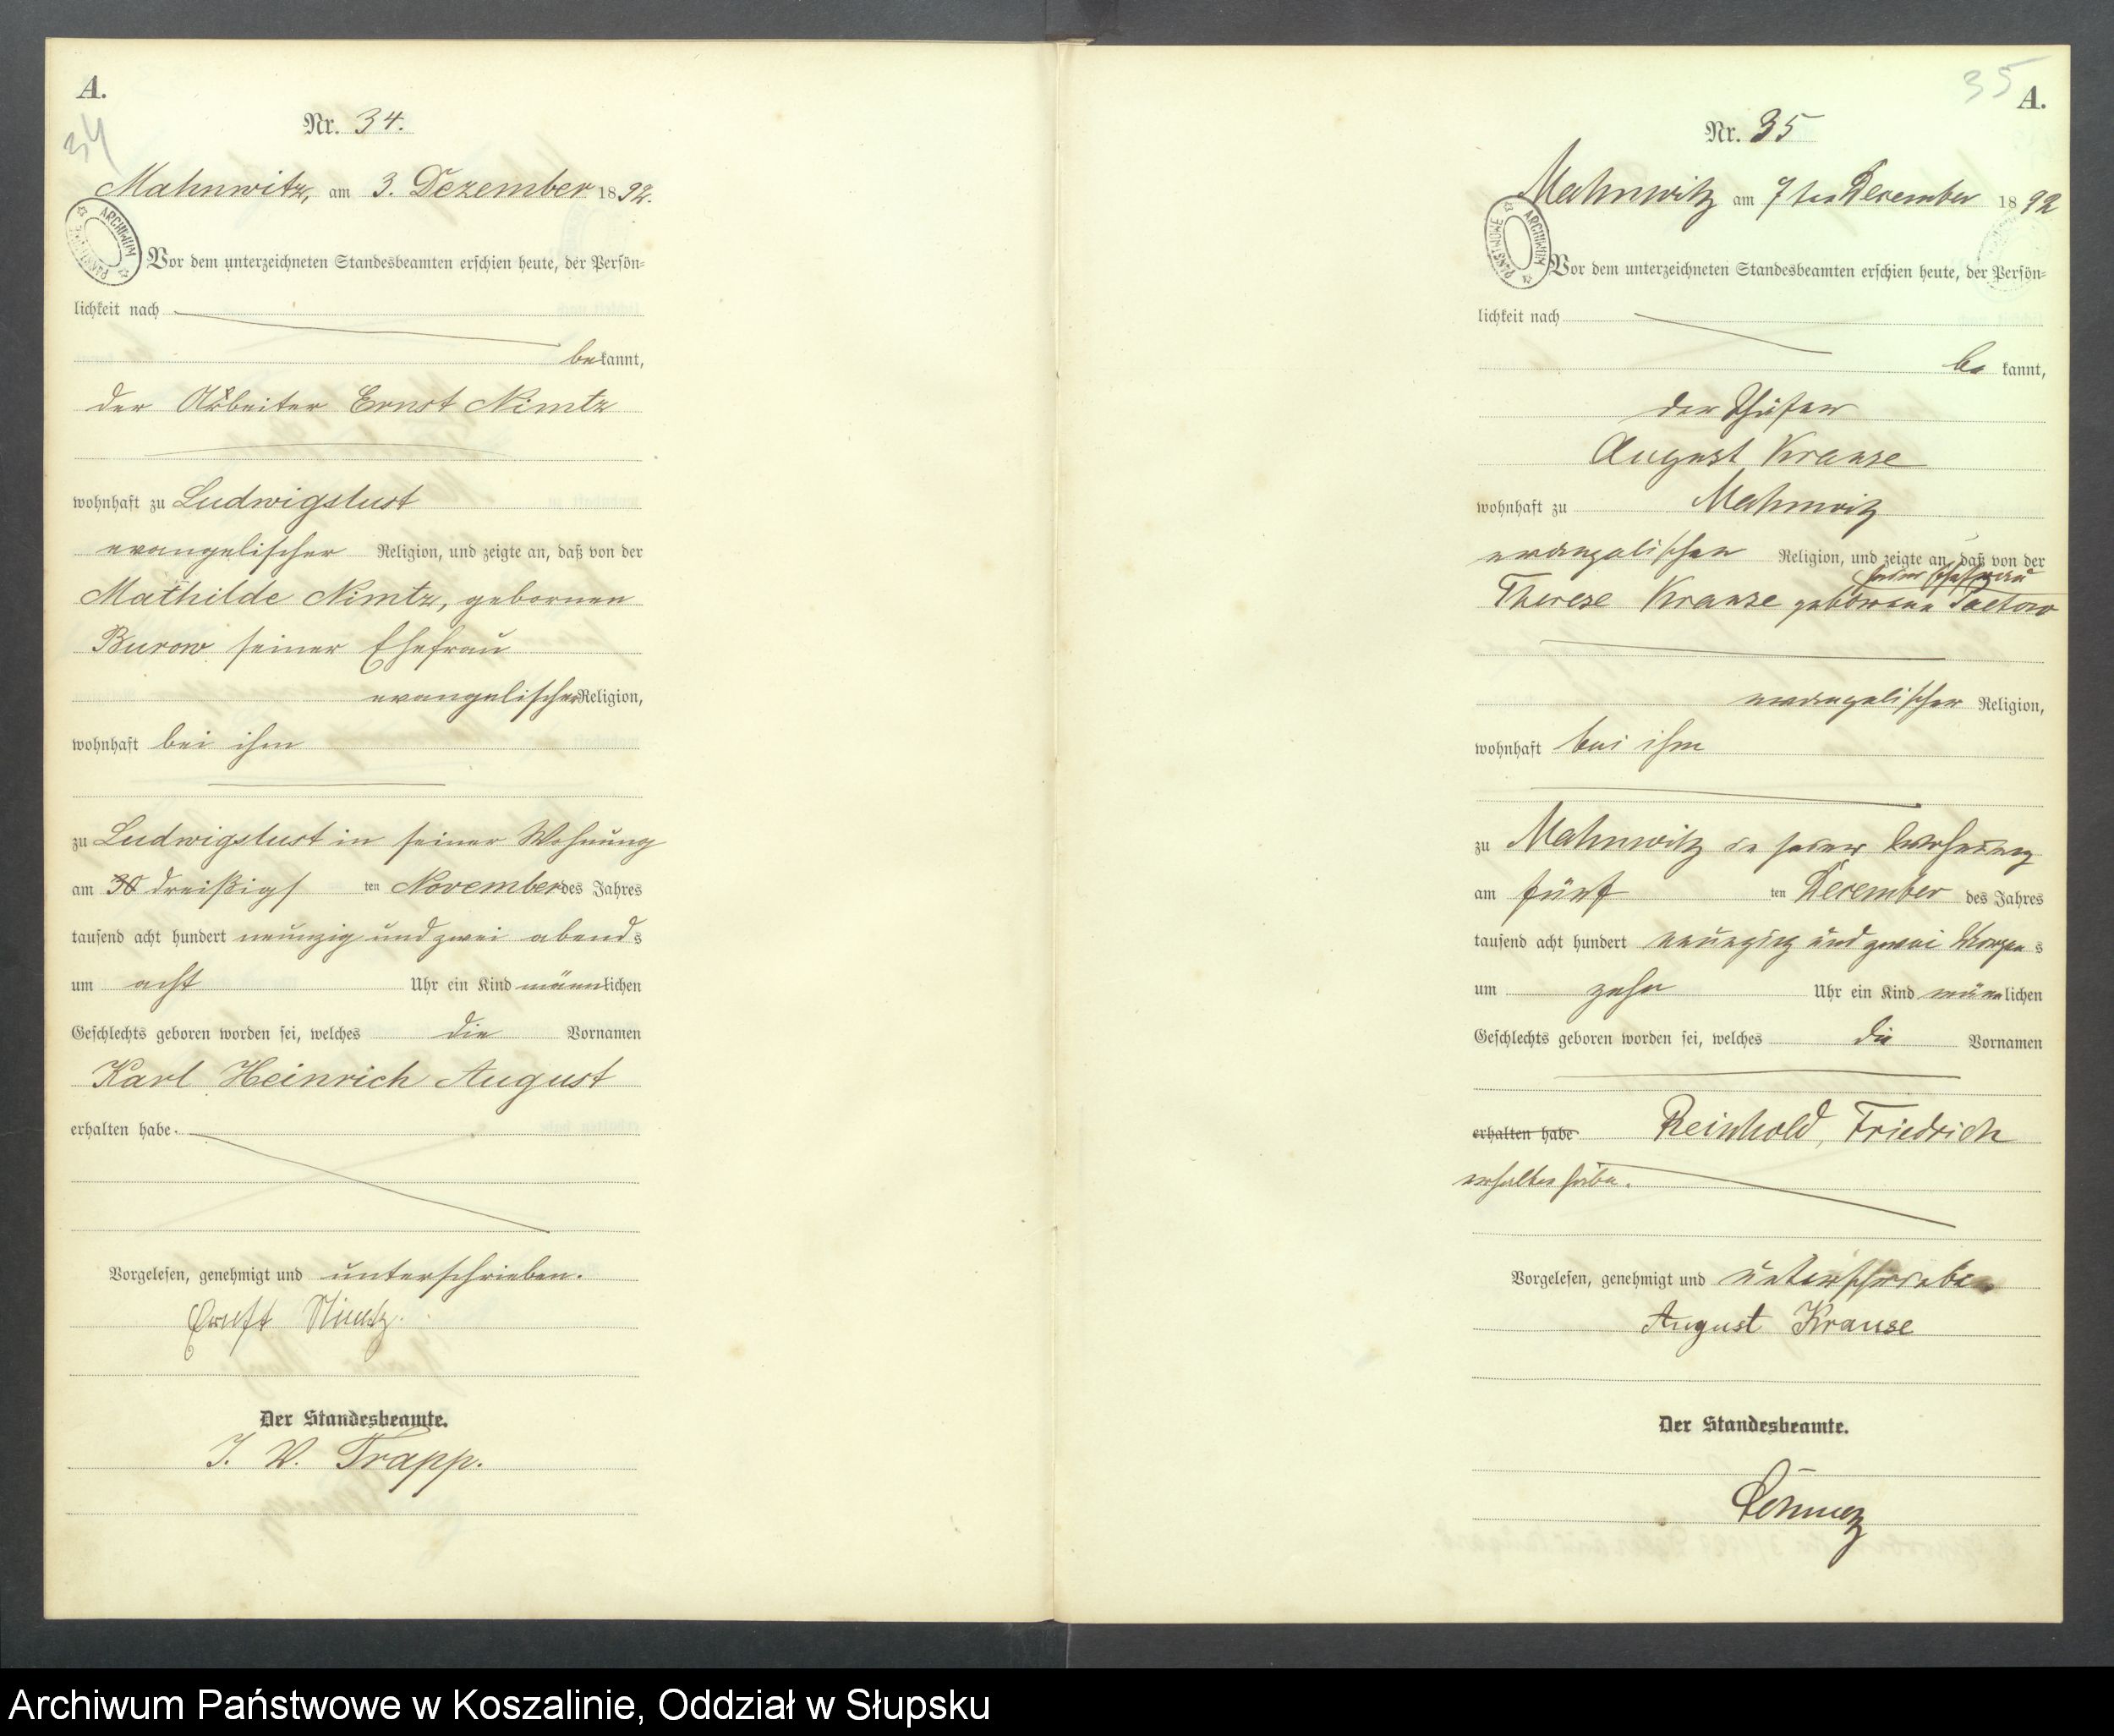 A.
34
Nr. 34.
Mahnwitz, am 3. Dezember 1892.
ARCHIWUM PAŃSTWOWE
Vor dem unterzeichneten Standesbeamten erschien heute, der Persön=
lichkeit nach
bekannt,
der Arbeiter Ernst Nimtz
wohnhaft zu Ludwigslust
evangelischer Religion, und zeigte an, daß von der
Mathilde Nimtz, gebornen
Burow seiner Ehefrau
evangelischer Religion,
wohnhaft bei ihm
zu Ludwigslust in seiner Wohnung
am 30 dreißigs ten November des Jahres
tausend acht hundert neunzig und zwei abends
um acht Uhr ein Kind männlichen
Geschlechts geboren worden sei, welches die Vornamen
Karl Heinrich August
erhalten habe.
Vorgelesen, genehmigt und unterschrieben.
Ernst Nimtz.
Der Standesbeamte.
J. V. Trapp.
35
A.
Nr. 35
Mahnwitz am 7ten Dezember 1892
ARCHIWUM PAŃSTWOWE
Vor dem unterzeichneten Standesbeamten erschien heute, der Persön=
lichkeit nach
be kannt,
der
August Krause
wohnhaft zu Mahnwitz
evangelischer Religion, und zeigte an, daß von der
seiner Ehefrau
Therese Krause geborene
evangelischer Religion,
wohnhaft bei ihm
zu Mahnwitz in seiner Wohnung
am fünf ten Dezember des Jahres
tausend acht hundert neunzig und zwei Morgens
um zehn Uhr ein Kind männlichen
Geschlechts geboren worden sei, welches die Vornamen
erhalten habe Reinhold, Friedrich
erhalten habe.
Vorgelesen, genehmigt und unterschrieben
August Krause
Der Standesbeamte.
Archiwum Państwowe w Koszalinie, Oddział w Słupsku